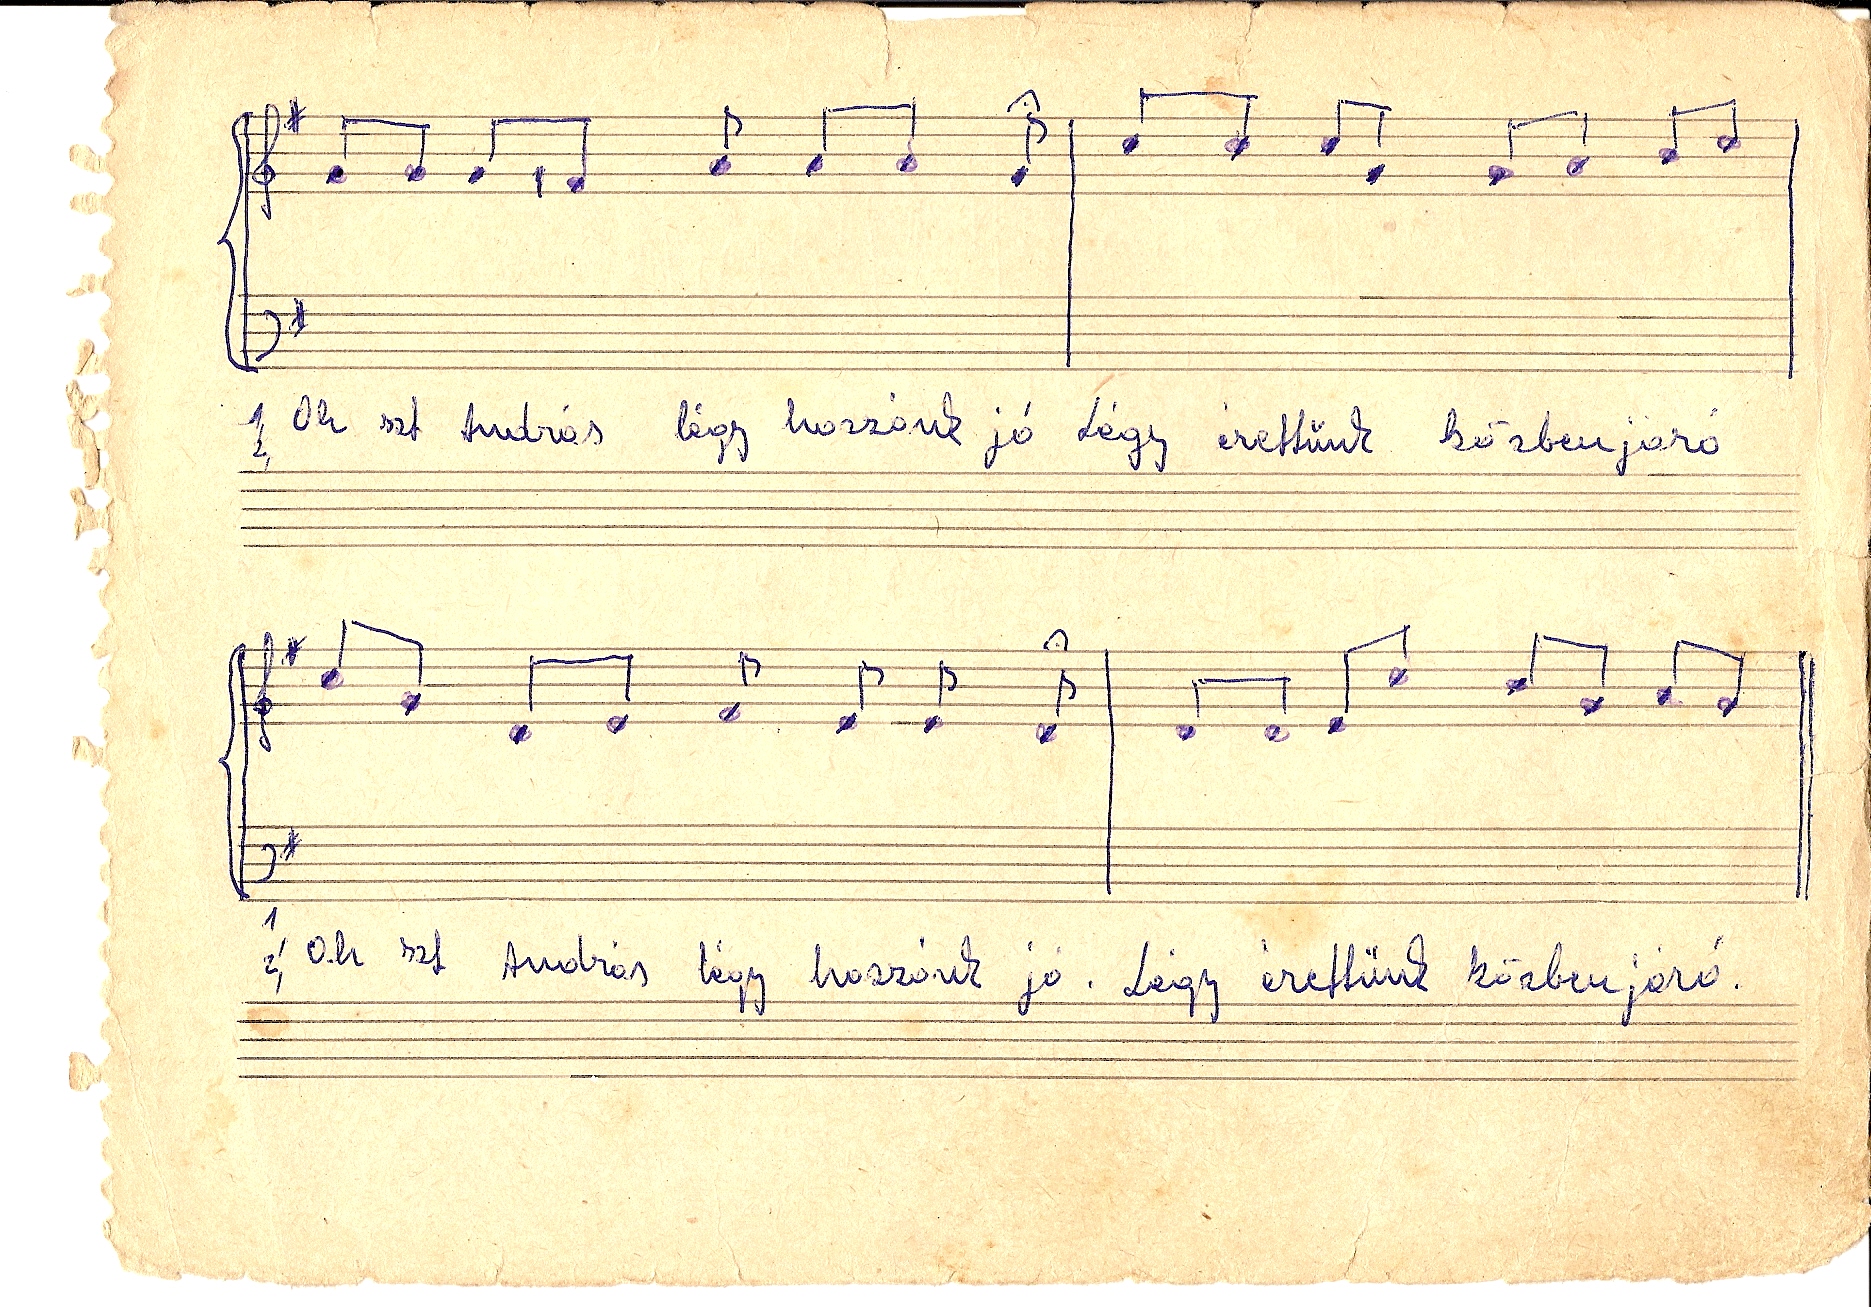 1 Oh szt András légy hozzánk jó Légy érettünk közbenjáró
2,
1
2, Oh szt András légy hozzánk jó. Légy érettünk közbenjáró.